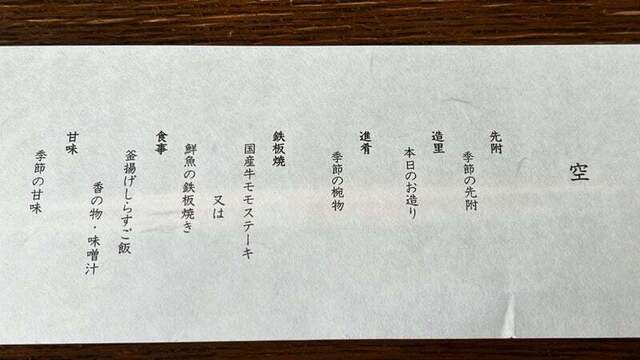 空
先附
季節の先附
造里
本日のお造り
進肴
季節の椀物
鉄板焼
国産牛モモステーキ
又は
鮮魚の鉄板焼き
食事
釜揚げしらすご飯
香の物・味噌汁
甘味
季節の甘味